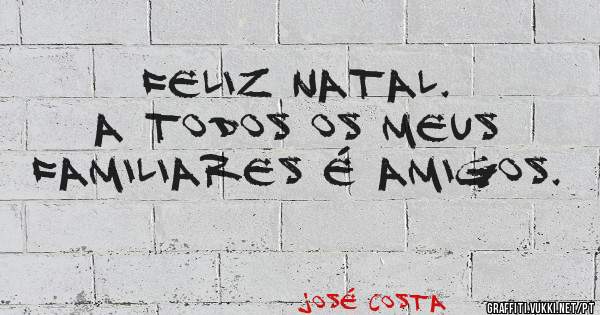 FELIZ NATAL.
A TODOS OS MEUS
FAMILIARES É AMIGOS.
JOSÉ COSTA
GRAFFITI.YUKKI.NET/PT